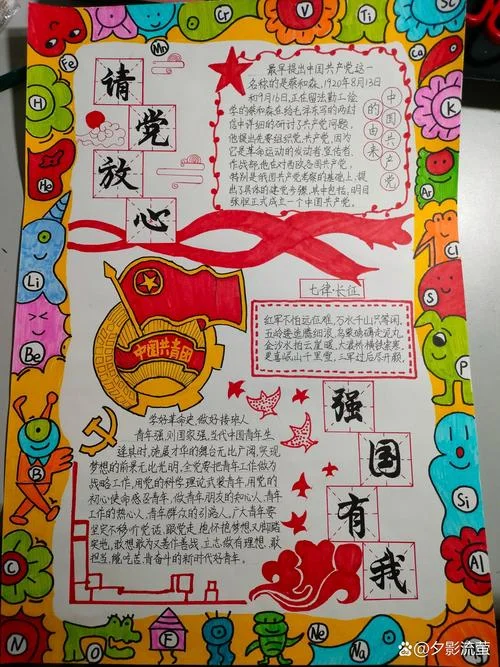 请
党
放
心
最早提出中国共产党这一
名称的是蔡和森,1920年8月13日
和9月16日,正在留法勤工俭
学的蔡和森在给毛泽东写的两封
信中详细的研讨了共产党问题,
他提出先要组织党,共产党,因为
它是革命运动的发动者,宣传者,
作战部,他在对西欧各国共产党,
特别是俄国共产党考察的基础上,提
出了具体的建党步骤,其中包括,明目
张胆正式成立一个中国共产党。
中国共产党
的由来
七律·长征
红军不怕远征难,万水千山只等闲。
五岭逶迤腾细浪,乌蒙磅礴走泥丸。
金沙水拍云崖暖,大渡桥横铁索寒。
更喜岷山千里雪,三军过后尽开颜。
中国共青团
学好革命史,做好接班人
青年强,则国家强,当代中国青年生
逢其时,施展才华的舞台无比广阔,实现
梦想的前景无比光明,全党要把青年工作做为
战略工作,用党的科学理论武装青年,用党的
初心使命感召青年,做青年朋友的知心人,青年
工作的热心人,青年群众的引路人,广大青年要
坚定不移听党话,跟党走,怀抱梦想又脚踏
实地,敢想敢为又善作善成,立志做有理想,敢
担当,能吃苦,肯奋斗的新时代好青年。
强
国
有
我
H
He
Li
Be
B
C
N
O
F
Ne
Na
Mg
Al
Si
P
S
Cl
Ar
K
Ca
Sc
Ti
V
Cr
Mn
Fe
@夕影流萤